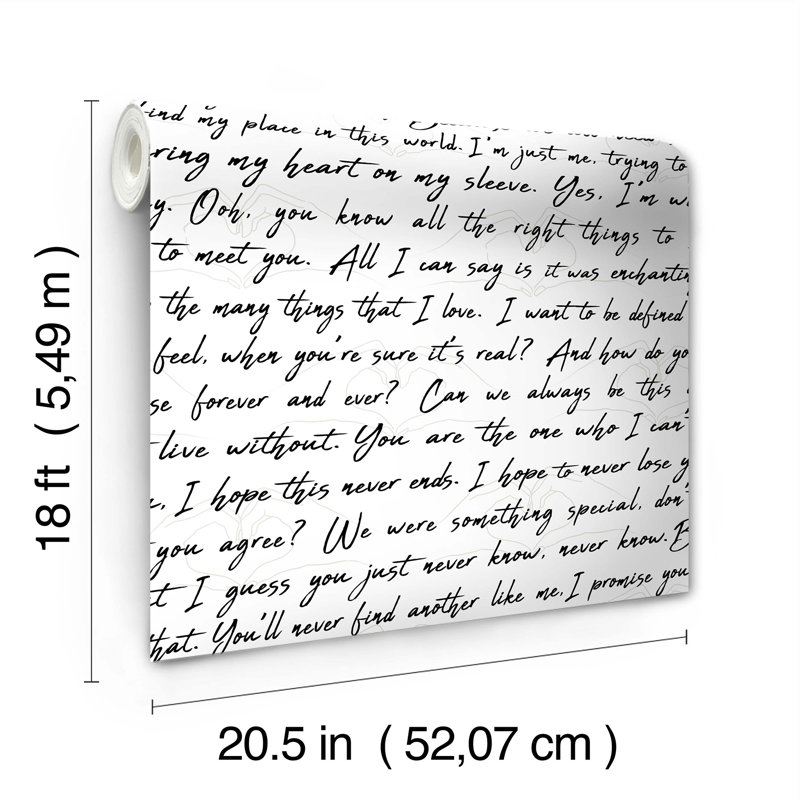 find my place in this world. I'm just me, trying to
ring my heart on my sleeve. Yes, I'm w
y. Ooh, you know all the right things to
to meet you. All I can say is it was enchantin
the many things that I love. I want to be defined
feel, when you're sure it's real? And how do yo
se forever and ever? Can we always be this
live without. You are the one who I can'
u, I hope this never ends. I hope to never lose y
you agree? We were something special, don'
t I guess you just never know, never know. B
hat. You'll never find another like me, I promise you
18 ft ( 5,49 m )
20.5 in ( 52,07 cm )